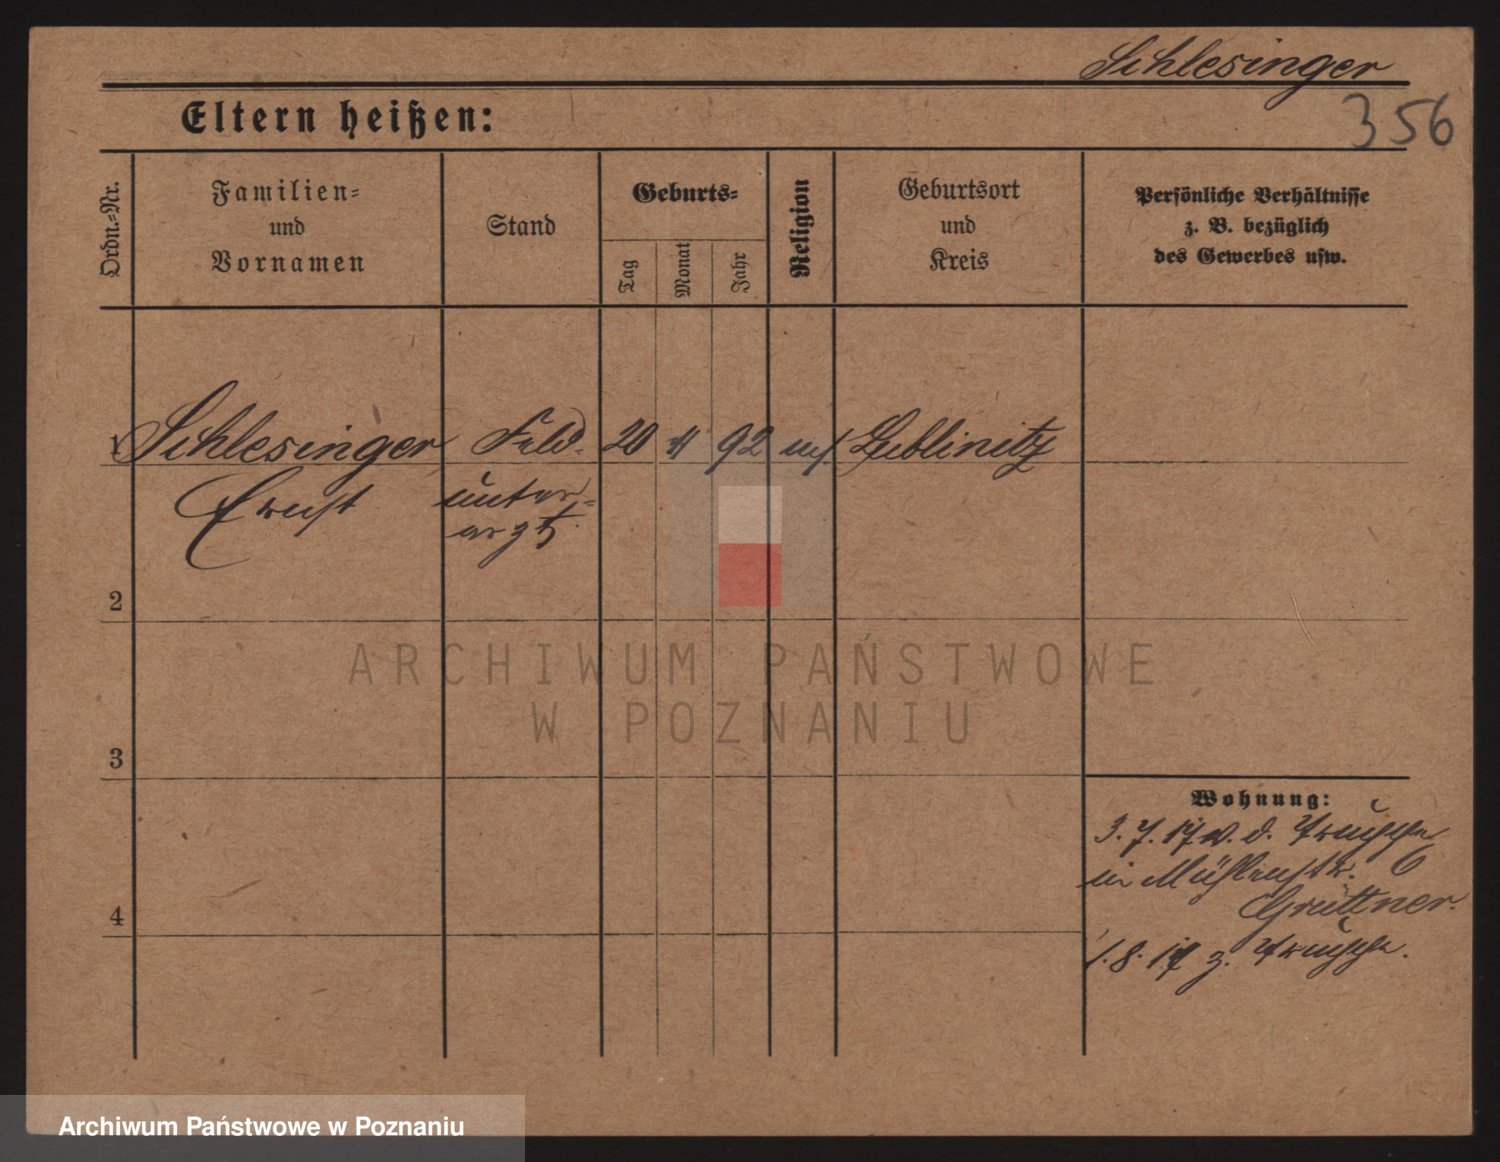 Schlesinger
Eltern heißen:
356
Ordn.=Nr.
Familien=
und
Vornamen
Stand
Geburts=
Tag
Monat
Jahr
Religion
Geburtsort
und
Kreis
Persönliche Verhältnisse
z. B. bezüglich
des Gewerbes usw.
1 Schlesinger Feld- 20 92 Lublinitz
Ernst unter=
arzt
2
ARCHIWUM PAŃSTWOWE
W POZNANIU
3
Wohnung:
3. 7. 17 v. d. Truppe
in Mühlenstr. 6
Grüttner.
4
1. 8. 17 z. Truppe.
Archiwum Państwowe w Poznaniu